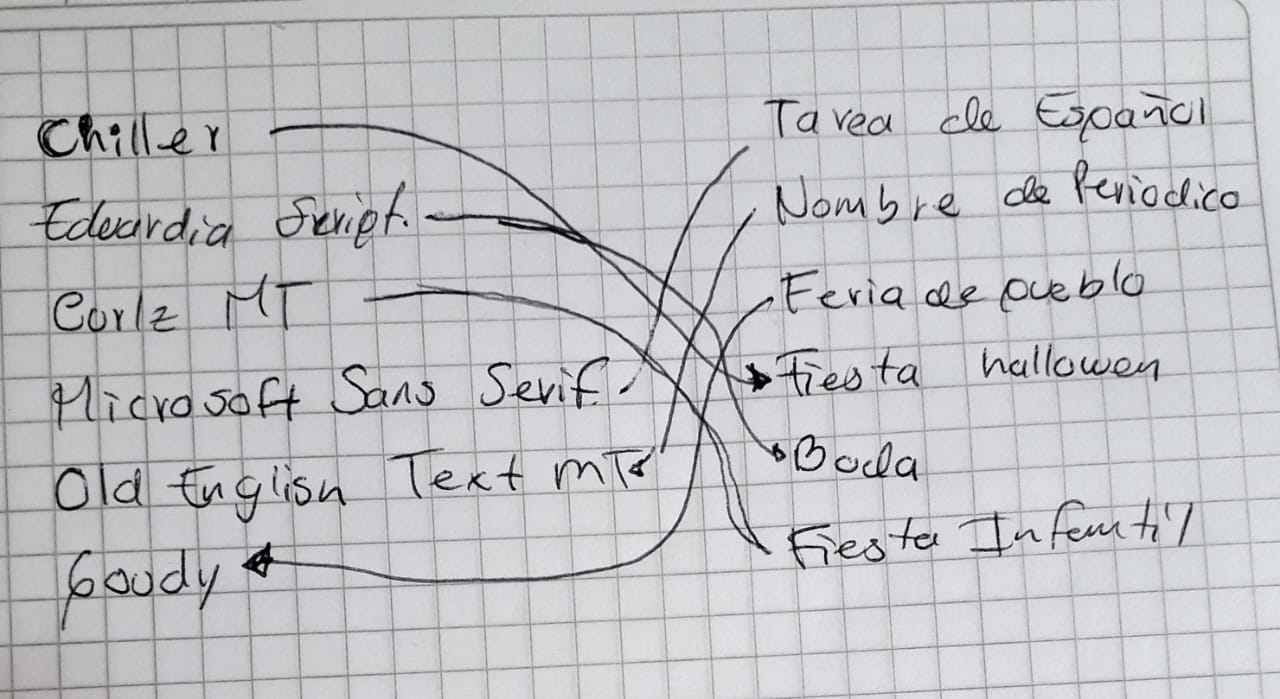 Chiller
Edwardia Script.
Curlz MT
Microsoft Sans Serif
Old English Text MT
Goudy
Tarea de Español
Nombre de Periodico
Feria de pueblo
Fiesta hallowen
Boda
Fiesta Infantil